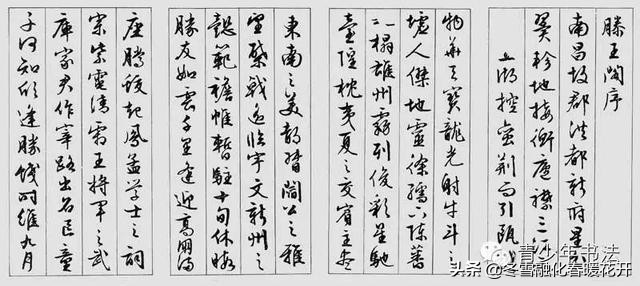 滕王阁序
南昌故郡洪都新府星分
翼轸地接衡庐襟三江
五湖控蛮荆而引瓯
物華天寶龍光射牛斗之
墟人傑地靈徐孺下陈蕃
之榻雄州霧列俊彩星馳
臺隍枕夷夏之交賓主盡
東南之美都督閻公之雅
望棨戟遥临宇文新州之
懿範襜帷暫駐十旬休暇
勝友如雲千里逢迎高朋滿
座騰蛟起鳳孟学士之詞
宗紫電清霜王将军之武
库家君作宰路出名區童
子何知躬逢勝餞时維九月
青少年书法
头条 @冬雪融化春暖花开